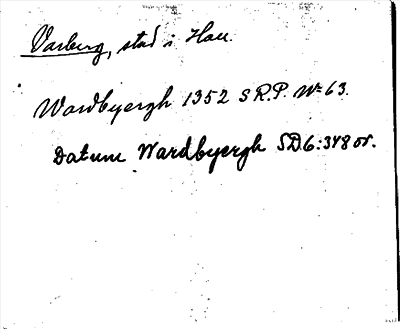 Varberg, stad i Hall.
Wardbyergh 1352 S R.P. Nr 63.
Datum Wardbyergh SD6:348 or.